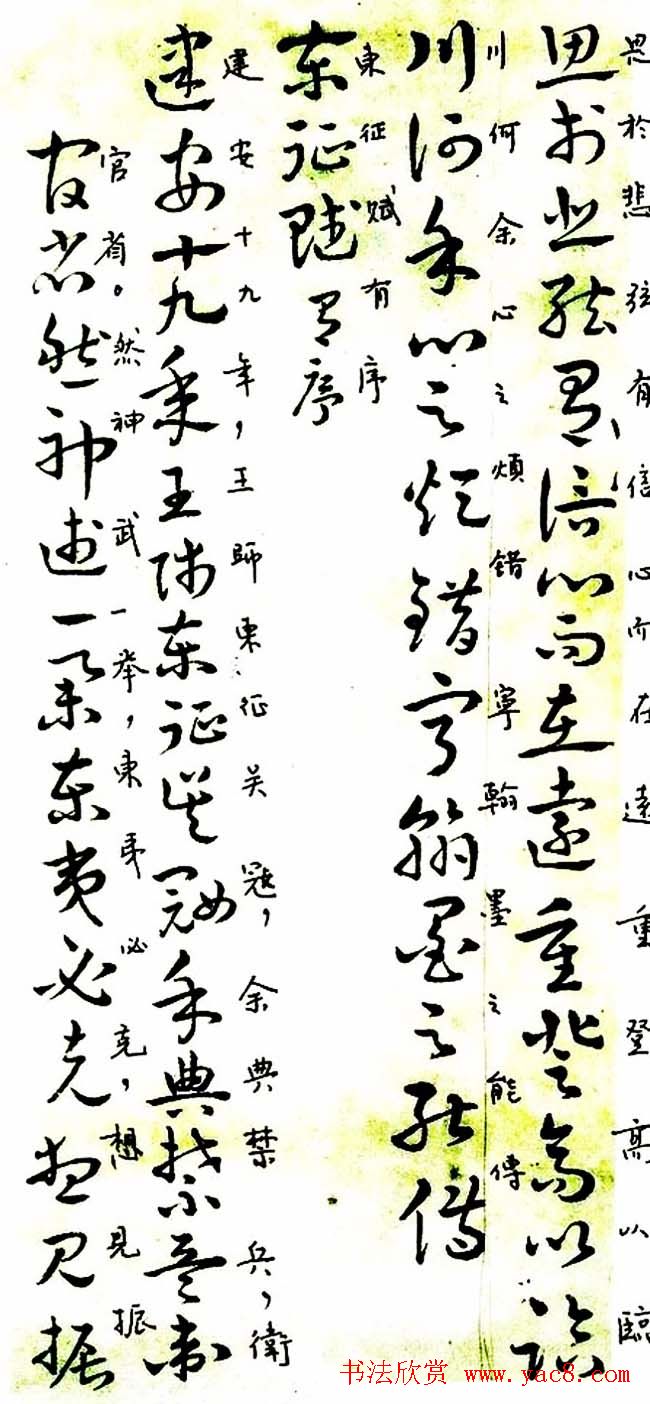 思於悲弦有倍心而在遠重登高以臨
思於悲弦有倍心而在遠重登高以臨
川何余心之煩錯寧翰墨之能傳
川何余心之煩錯寧翰墨之能傳
東征賦有序
東征賦有序
建安十九年，王師東征吴寇，余典禁兵，衛
建安十九年王師東征吴寇余典禁兵衛
官省。然神武一举，東夷必克，想見振
官省。然神武一舉東夷必克想見振
书法欣赏 www.yac8.com